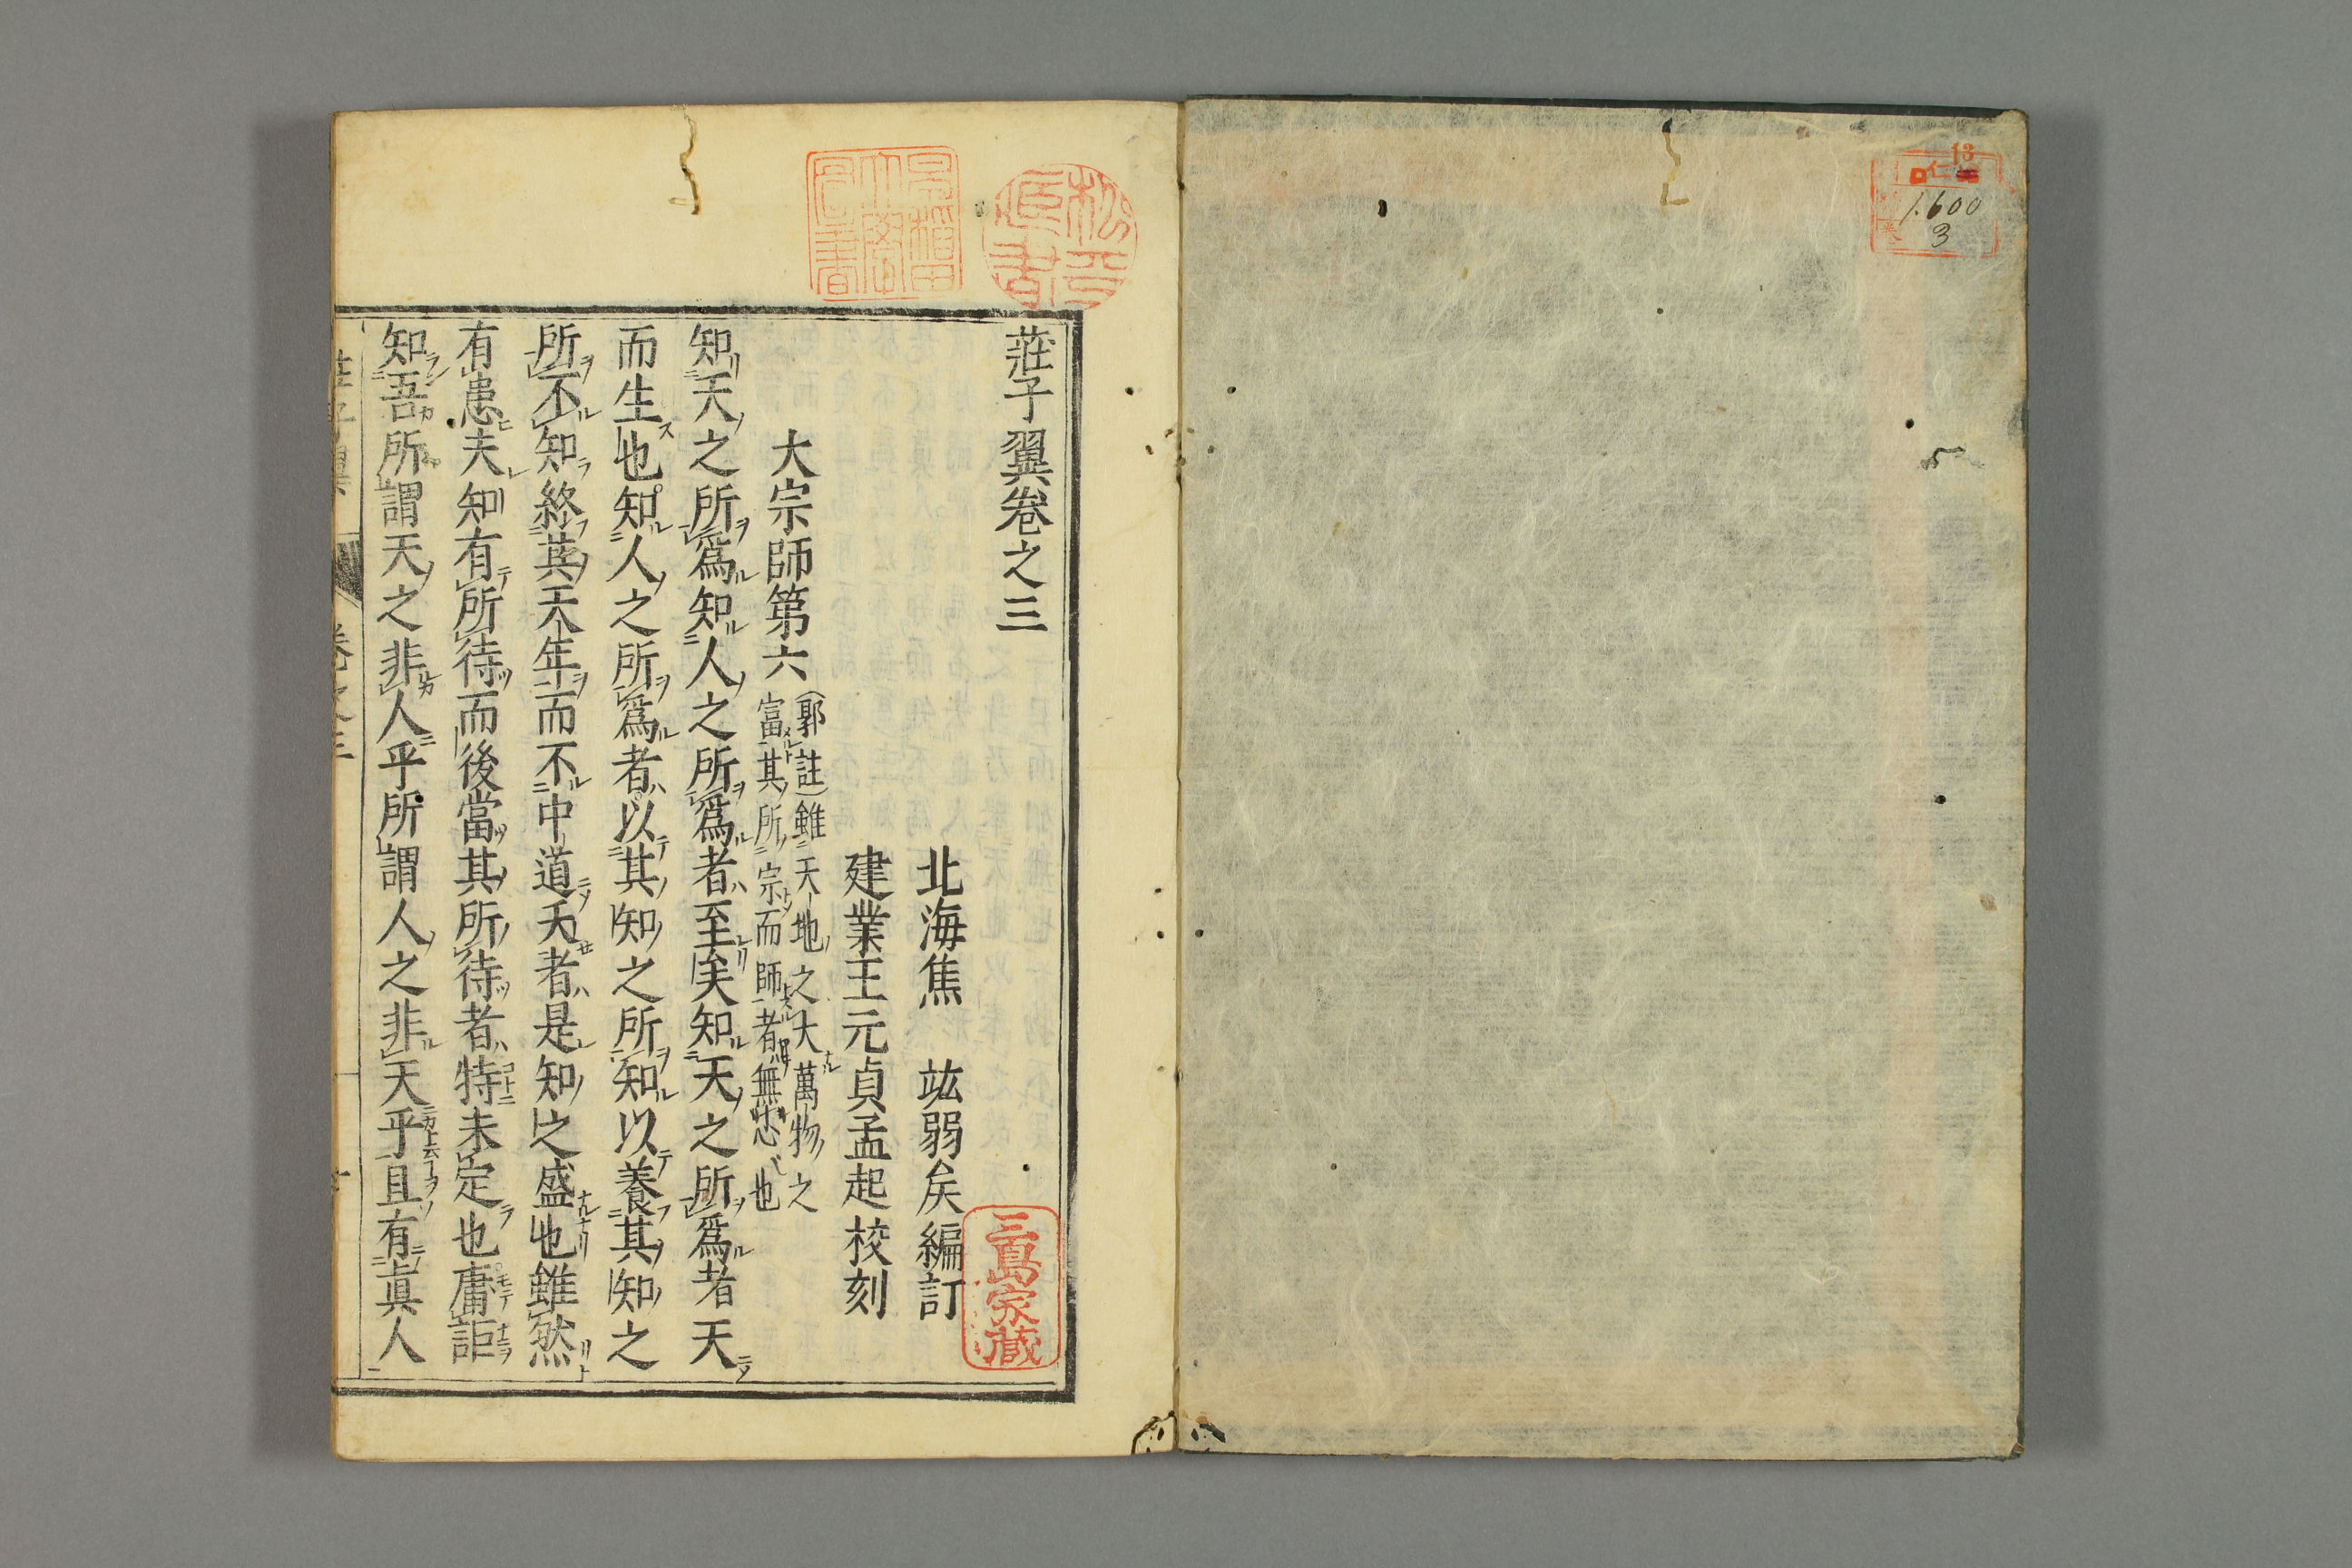 13
仁
1.600
3
松平直書
早稲田大學圖書
莊子翼卷之三
北海焦 竑弱矦編訂
三島家蔵
建業王元貞孟起校刻
大宗師第六
(郭註)雖天地之大萬物之
富其所宗而師者無心也
知天之所爲知人之所爲者至矣知天之所爲者天
而生也知人之所爲者以其知之所知以養其知之
所不知終其天年而不中道夭者是知之盛也雖然
有患夫知有所待而後當其所待者特未定也庸詎
知吾所謂天之非人乎所謂人之非天乎且有眞人
莊子翼 卷之三